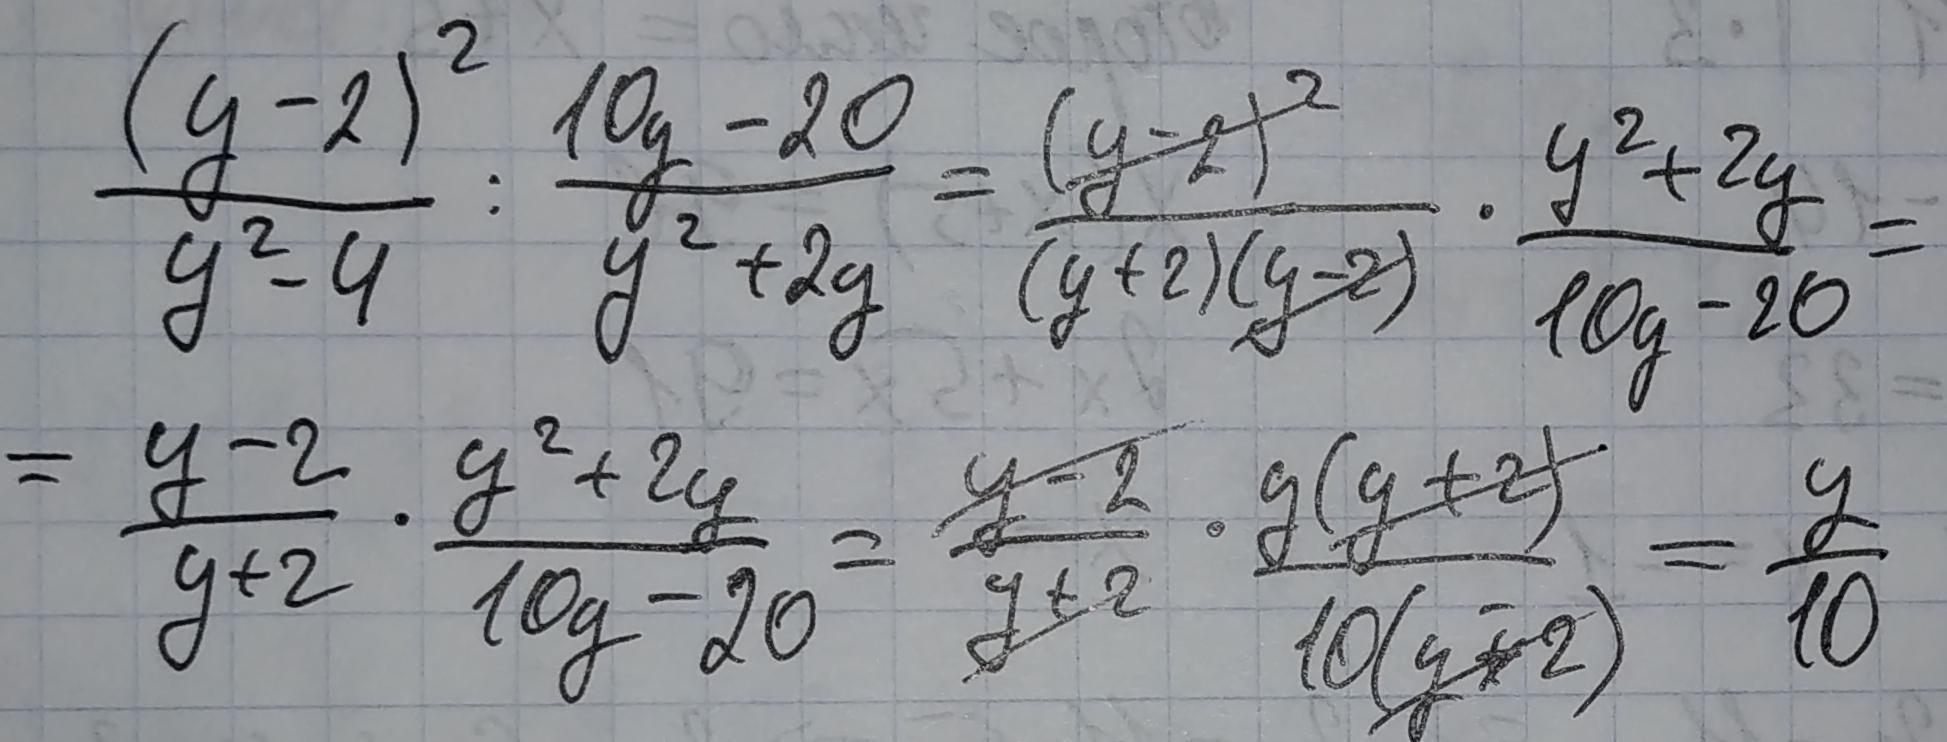 (y-2)²/(y²-4) : (10y-20)/(y²+2y) = (y-2)²/((y+2)(y-2)) · (y²+2y)/(10y-20) =
= (y-2)/(y+2) · (y²+2y)/(10y-20) = (y-2)/(y+2) · y(y+2)/(10(y-2)) = y/10